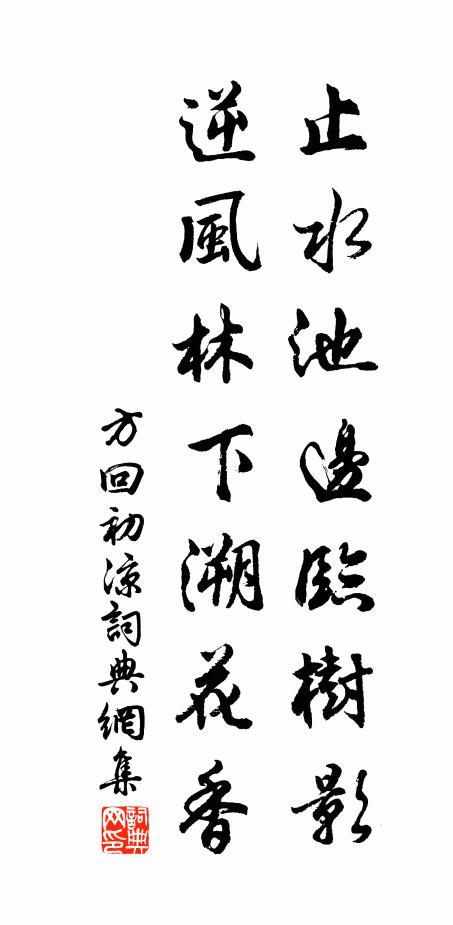 止水池邊臨樹影
逆風林下溯花香
方回初涼詞典網集
詞典網印